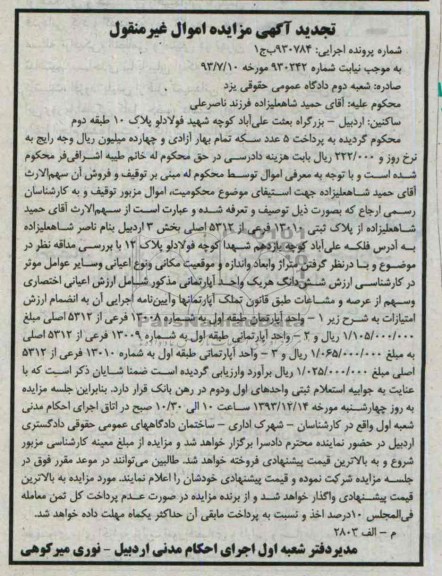 تجدید آگهی مزایده اموال غیرمنقول
شماره پرونده اجرایی: ۹۳۰۷۸۴ب‌ج۱
به موجب نیابت شماره ۹۳۰۲۴۲ مورخه ۹۳/۷/۱۰
صادره: شعبه دوم دادگاه عمومی حقوقی یزد
محکوم علیه: آقای حمید شاهعلیزاده فرزند ناصرعلی
ساکنین: اردبیل - بزرگراه بعثت علی‌آباد کوچه شهید فولادلو پلاک ۱۰ طبقه دوم
محکوم گردیده به پرداخت ۵ عدد سکه تمام بهار آزادی و چهارده میلیون ریال وجه رایج به
نرخ روز و ۲۲۲/۰۰۰ ریال بابت هزینه دادرسی در حق محکوم له خانم طیبه اشرافی‌فر محکوم
شده است و با توجه به معرفی اموال توسط محکوم له مبنی بر توقیف و فروش آن سهم‌الارث
آقای حمید شاهعلیزاده جهت استیفای موضوع محکومیت، اموال مزبور توقیف و به کارشناسان
رسمی ارجاع که بصورت ذیل توصیف و تعرفه شده و عبارت است از سهم‌الارث آقای حمید
شاهعلیزاده از پلاک ثبتی ۱۳۰۱۰ فرعی از ۵۳۱۲ اصلی بخش ۳ اردبیل بنام ناصر شاهعلیزاده
به آدرس فلکه علی‌آباد کوچه یازدهم شهدا کوچه فولادلو پلاک ۱۲ با بررسی مداقه نظر در
موضوع و با درنظر گرفتن متراژ وابعاد واندازه و موقعیت مکانی ونوع اعیانی وسایر عوامل موثر
در کارشناسی ارزش شش‌دانگ هریک واحد آپارتمانی مذکور شامل ارزش اعیانی اختصاری
وسهم از عرصه و مشاعات طبق قانون تملک آپارتمانها وآیین‌نامه اجرایی آن به انضمام ارزش
امتیازات به شرح زیر ۱ - واحد آپارتمان طبقه اول به شماره ۱۳۰۰۸ فرعی از ۵۳۱۲ اصلی
۱/۱۰۵/۰۰۰/۰۰۰ ریال و ۲ - واحد آپارتمانی طبقه اول به شماره ۱۳۰۰۹ فرعی از ۵۳۱۲ اصلی
به مبلغ ۱/۰۶۵/۰۰۰/۰۰۰ ریال و ۳ - واحد آپارتمانی طبقه اول به شماره ۱۳۰۱۰ فرعی از ۵۳۱۲
اصلی مبلغ ۱/۰۲۵/۰۰۰/۰۰۰ ریال برآورد وارزیابی گردیده است ضمنا شایان ذکر است که با
عنایت به جوابیه استعلام ثبتی واحدهای اول ودوم در رهن بانک قرار دارد. بنابراین جلسه مزایده
به روز چهارشنبه مورخه ۱۳۹۳/۱۲/۱۴ ساعت ۱۰ الی ۱۰/۳۰ صبح در اتاق اجرای احکام مدنی
شعبه اول واقع در کارشناسان - شهرک اداری - ساختمان دادگاههای عمومی حقوقی دادگستری
اردبیل در حضور نماینده محترم دادسرا برگزار خواهد شد و مزایده از مبلغ معینه کارشناسی مزبور
شروع و به بالاترین قیمت پیشنهادی فروخته خواهد شد. طالبین می‌توانند در موعد مقرر فوق در
جلسه مزایده شرکت نموده و قیمت پیشنهادی خودشان را اعلام نمایند. مورد مزایده به بالاترین
قیمت پیشنهادی واگذار خواهد شد و از برنده مزایده در صورت عدم پرداخت کل ثمن معامله
فی‌المجلس ۱۰درصد اخذ و نسبت به پرداخت مابقی آن حداکثر یکماه مهلت داده خواهد شد.
م - الف ۲۸۰۳
مدیردفتر شعبه اول اجرای احکام مدنی اردبیل - نوری میرکوهی